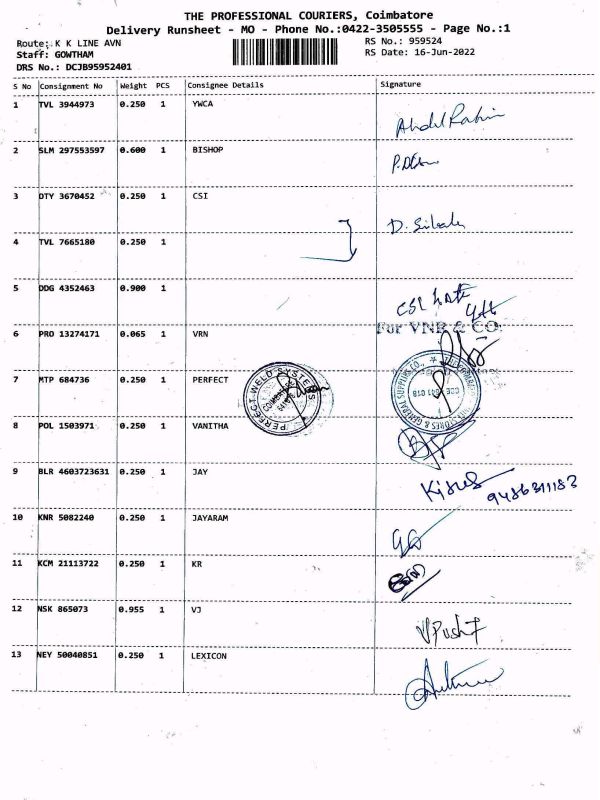 THE PROFESSIONAL COURIERS, Coimbatore
Delivery Runsheet - MO - Phone No.:0422-3505555 - Page No.:1
Route: K K LINE AVN
RS No.: 959524
Staff: GOWTHAM
RS Date: 16-Jun-2022
DRS No.: DCJB95952401
S No Consignment No Weight PCS Consignee Details Signature
1 TVL 3944973 0.250 1 YWCA
Abdul Rahim
2 SLM 297553597 0.600 1 BISHOP
3 DTY 3670452 0.250 1 CSI
4 TVL 7665180 0.250 1
5 DDG 4352463 0.900 1
CSI
For VNR & CO.
6 PRO 13274171 0.065 1 VRN
7 MTP 684736 0.250 1 PERFECT
PERFECT WELD SYSTEMS
& GENERAL SUPPLIES CO.,
8 POL 1503971 0.250 1 VANITHA
9 BLR 4603723631 0.250 1 JAY
9486311183
10 KNR 5082240 0.250 1 JAYARAM
11 KCM 21113722 0.250 1 KR
12 NSK 865073 0.955 1 VJ
13 NEY 50040851 0.250 1 LEXICON